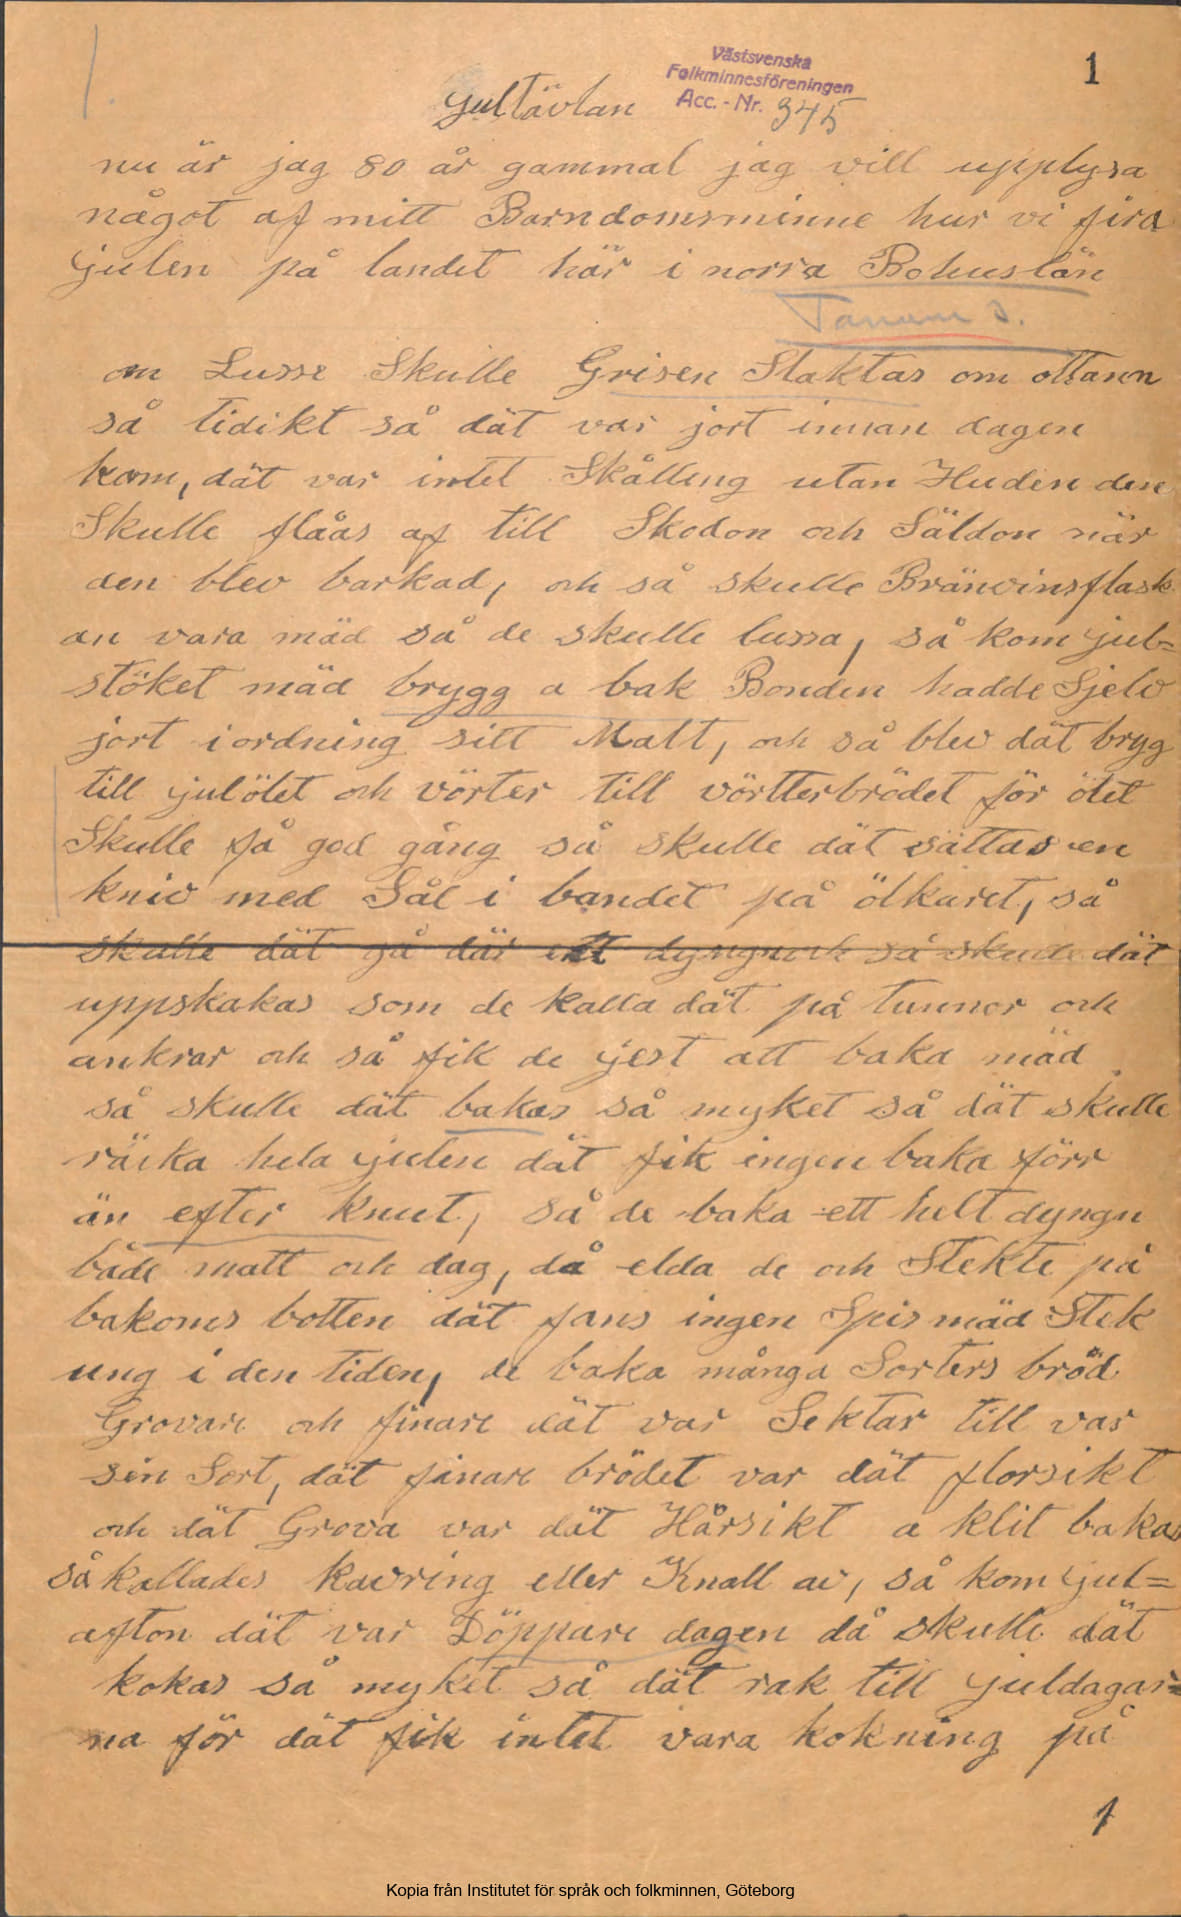 1
Västsvenska
Folkminnesföreningen
Acc. - Nr. 345
Jultävlan
nu är jag 80 år gammal jag vill upplysa
något af mitt Barndomsminne hur vi fira
julen på landet här i norra Bohuslän
Tanum s.
om Lusse Skulle Grisen Slaktas om ottann
så tidikt så dät var jort innan dagen
kom, dät var intet Skålling utan Huden den
Skulle flåas af till Skodon och Säldon när
den blev barkad, och så skulle Bränvinsflask
an vara mäd så de skulle lussa, så kom jul=
stöket mäd brygg a bak Bonden hadde Sjelv
jort iordning sitt Malt, och så blev dät bryg
till julölet och vörter till vörtterbrödet för ölet
Skulle få god gång så skulle dät sättas en
kniv med Stål i bandet på ölkaret, så
skulle dät gå där ett dyngn och så skulle dät
uppskakas som de kalla dät på tunnor och
ankrar och så fik de jest att baka mäd
så skulle dät bakas så myket så dät skulle
räcka hela julen dät fik ingen baka förr
än efter knut, så de baka ett helt dyngn
både natt och dag, då elda de och Stekte på
bakoms botten dät fans ingen Spis mäd Stek
ung i den tiden, de baka många Sorters bröd
Grovare och finare dät var Sektar till var
sin Sort, dät finare brödet var dät florsikt
och dät Grova var dät Hårsikt a klit bakas
så kallades kavring eller Knall av, så kom jul=
afton dät var Döppare dagen då skulle dät
kokas så myket så dät rak till juldagar=
na för dät fik intet vara kokning på
1
Kopia från Institutet för språk och folkminnen, Göteborg